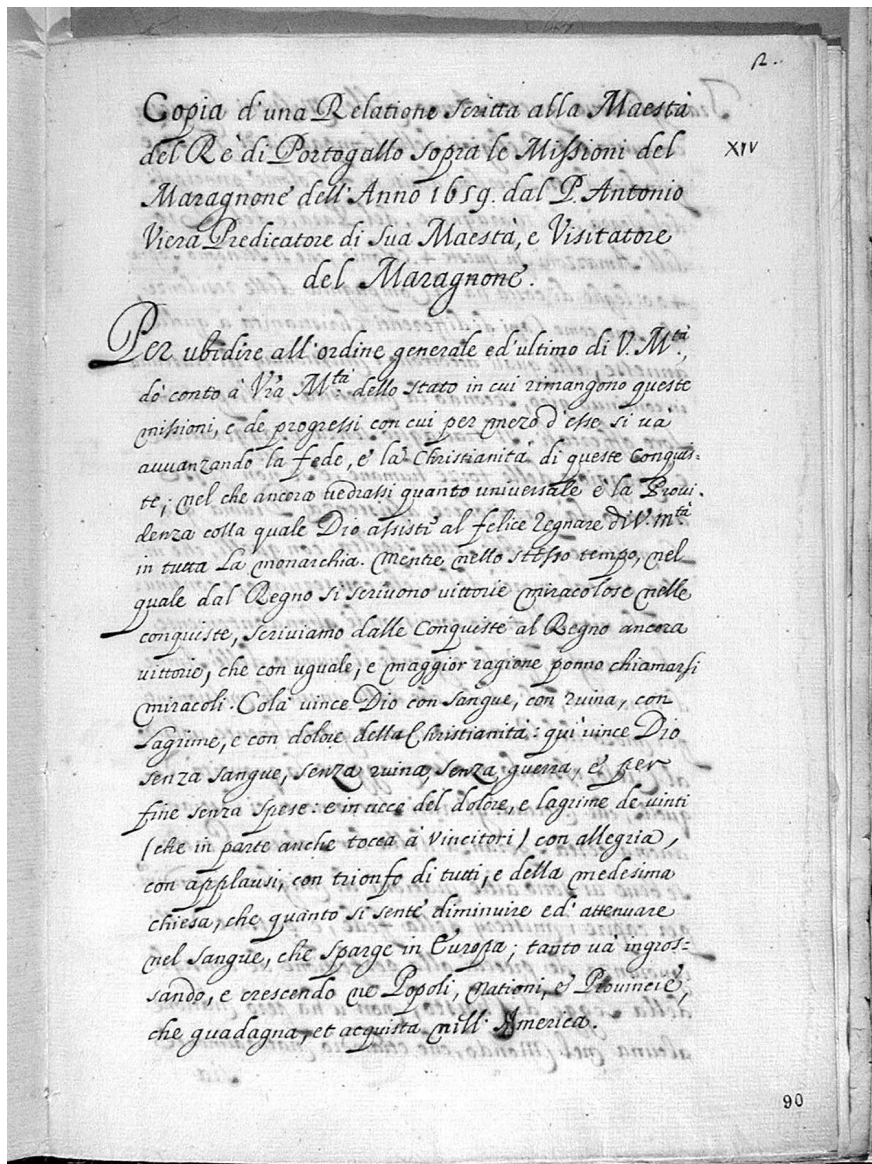 Copia d'una Relatione scritta alla Maestà
del Rè di Portogallo sopra le Missioni del
XIV
Maragnone dell'Anno 1659. dal P. Antonio
Viera Predicatore di sua Maestà, e Visitatore
del Maragnone.
Per ubidire all'ordine generale ed'ultimo di V. M.tà,
dò conto à Vra M.tà dello stato in cui rimangono queste
missioni, e de progressi con cui per mezo d'esse si và
avvanzando la fede, e la Christianità di queste Conquis-
te; nel che ancora vedrassi quanto universale è la Provi-
denza colla quale Dio assiste al felice regnare di V. M.tà
in tutta la monarchia. Mentre nello stesso tempo, nel
quale dal Regno si scrivono vittorie miracolose nelle
conquiste, scriviamo dalle Conquiste al Regno ancora
vittorie, che con uguale, e maggior ragione ponno chiamarsi
miracoli. Colà vince Dio con sangue, con ruina, con
lagrime, e con dolore della Christianità: quì vince Dio
senza sangue, senza ruina, senza guerra, e per
fine senza spese: e in vece del dolore, e lagrime de vinti
(che in parte anche tocca à vincitori) con allegria,
con applausi, con trionfo di tutti, e della medesima
chiesa, che quanto si sente diminuire ed' attenuare
nel sangue, che sparge in Europa; tanto và ingros-
sando, e crescendo ne Popoli, Nationi, e Provincie,
che guadagna, et acquista nell' America.
90